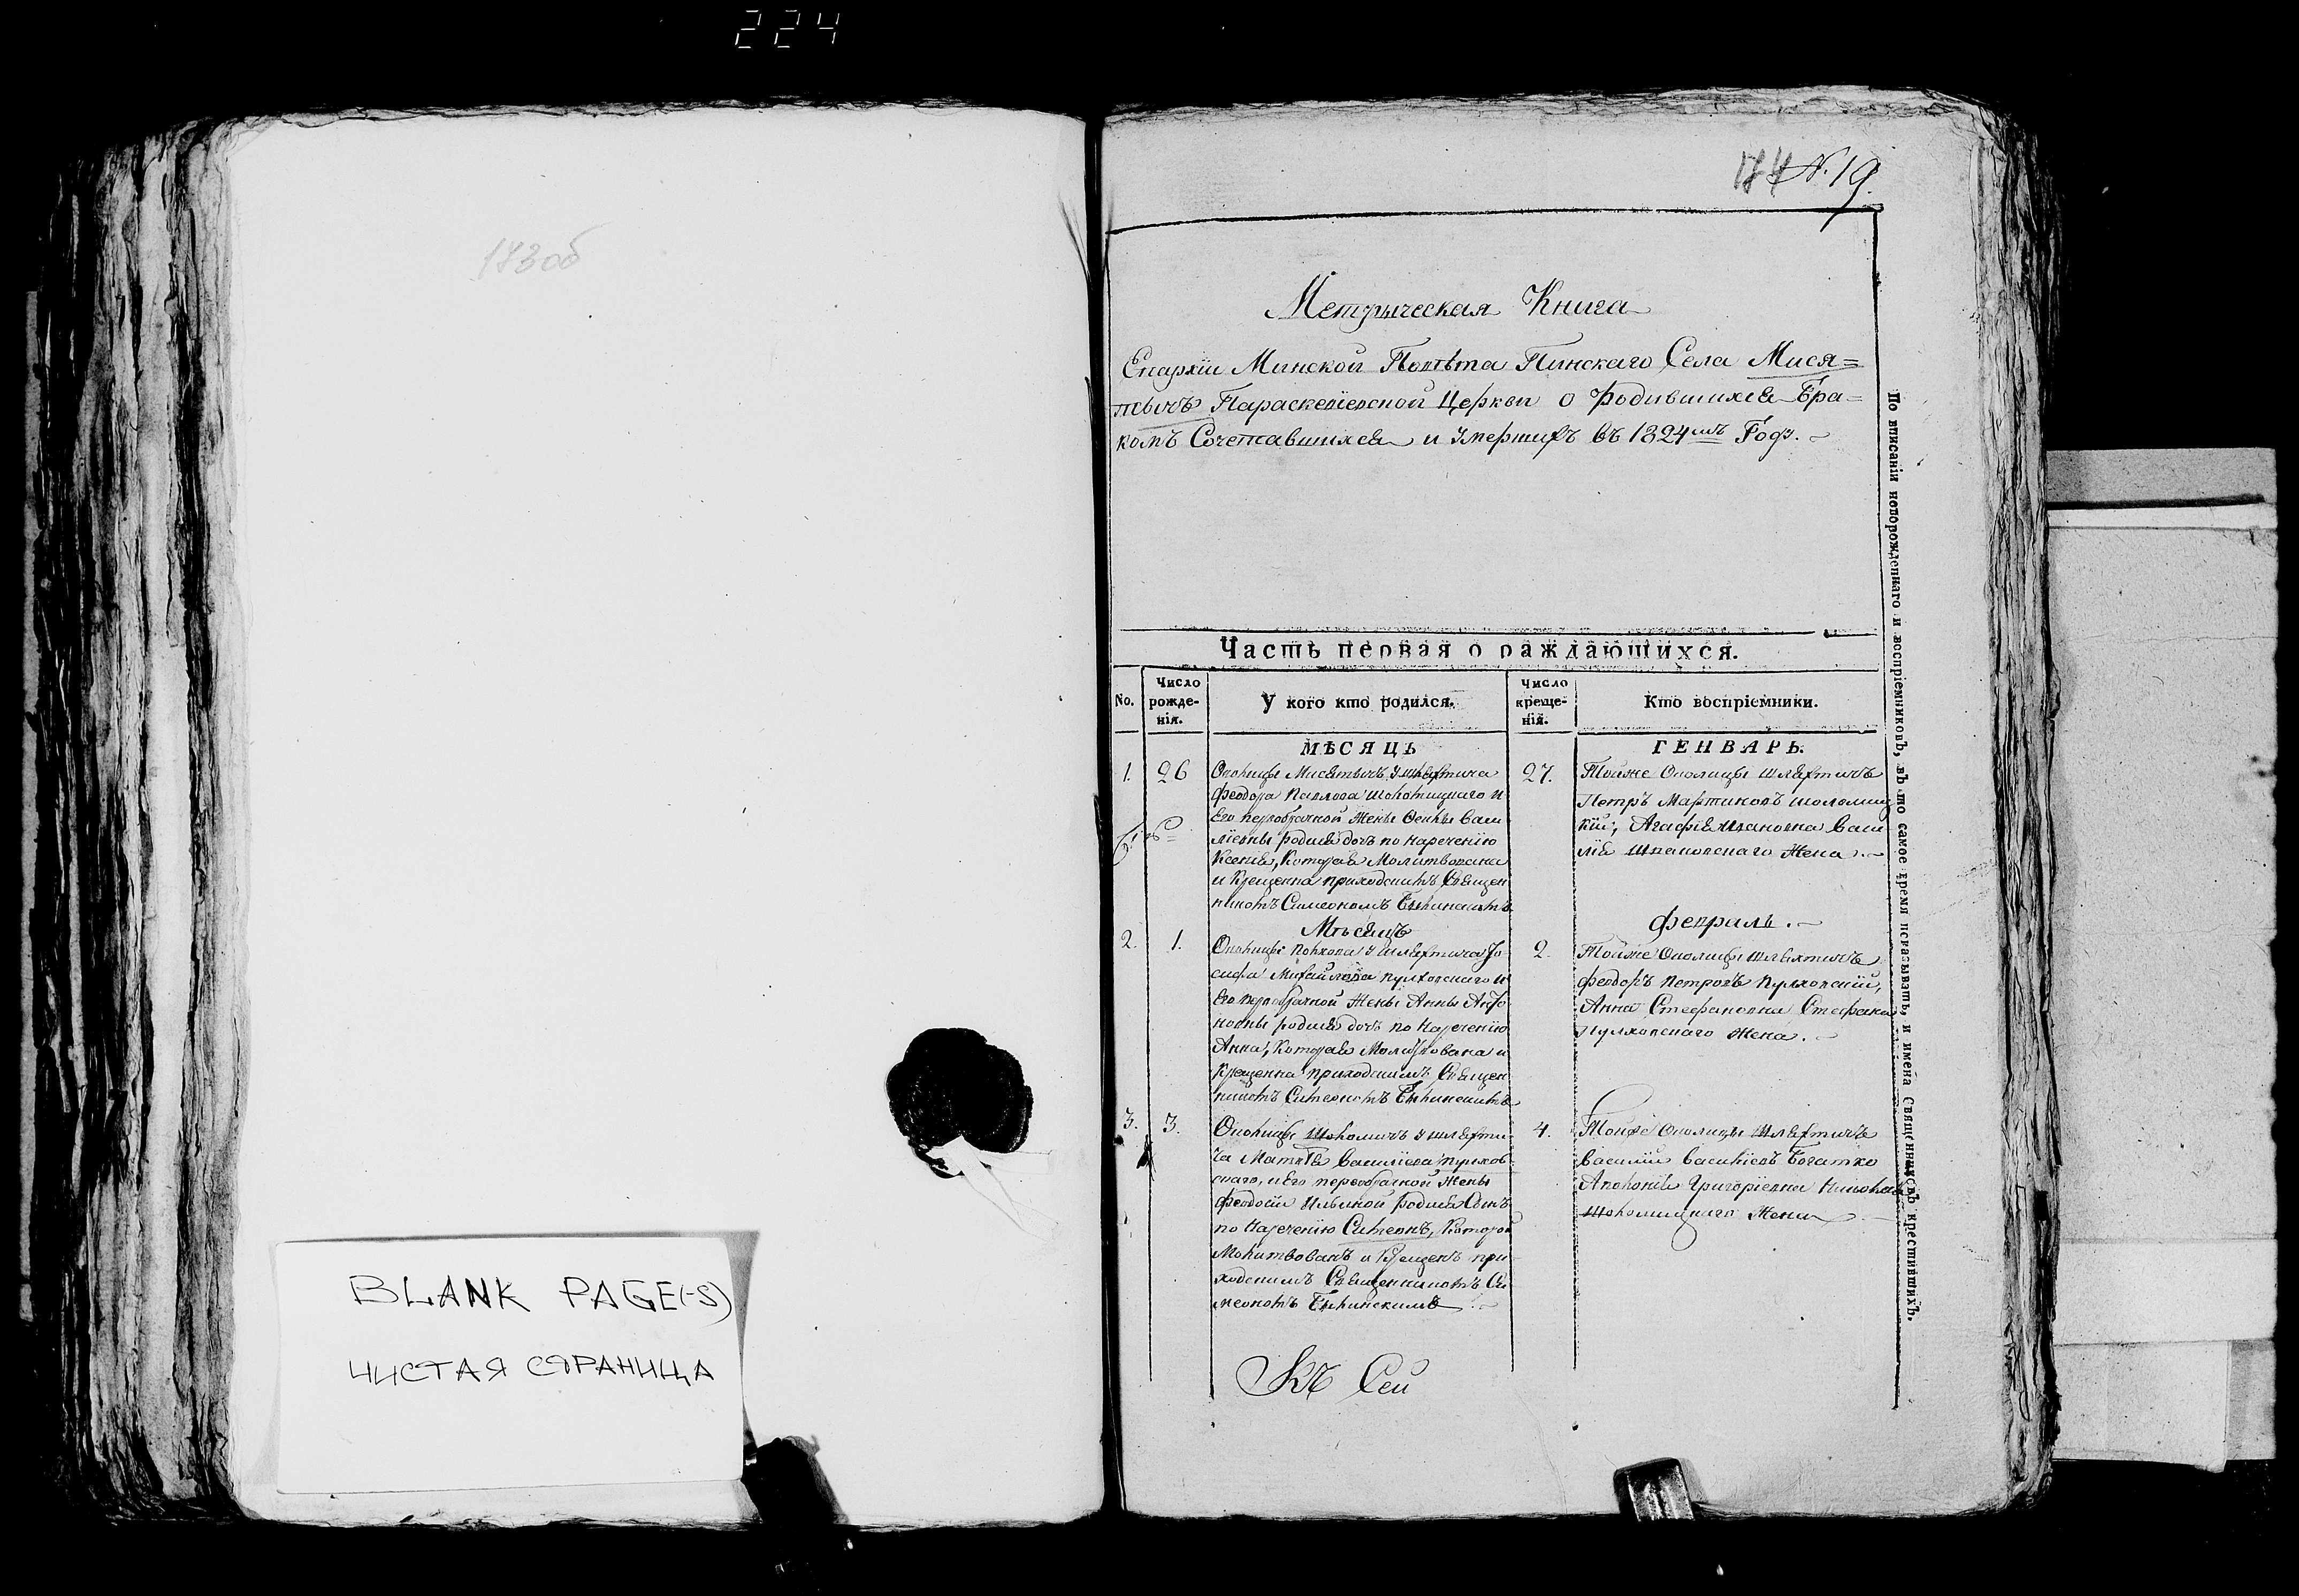 224
173об
BLANK PAGE(-S)
ЧИСТАЯ СТРАНИЦА
174 N. 19.
Метрическая Книга
Епархіи Минской Повѣта Пинскаго Села Мися=
тычъ Параскевіевской Церкви о Родившихся Бра=
комъ Сочетавшихся и Умершихъ въ 1824мъ Году.
Часть первая о раждающихся.
No. Число рожде-нія. У кого кто родился. Число креще-нія. Кто воспріемники.
МѢСЯЦЪ ГЕНВАРЬ.
1. 26 27.
Околицы Мисятычъ у шляхтича
Феодора Павлова Шоломицкаго и
Его первобрачной Жены Васи
ліевны родися дочь по нареченію
Ксенія, Которая Молитвована
и Крещенна приходскимъ Священ
никомъ Симеономъ
Тойже Околицы шляхтичъ
Петръ Мартиновъ Шоломиц
кій, Агафія Ивановна Васи
лія Жена.
Мѣсяцъ Февраль.
2. 1. 2.
Околицы у шляхтича Іо
сифа Михайлова Пулховскаго и
Его первобрачной Жены Анны
родися дочь по Нареченію
Анна, Которая Молитвована и
Крещенна приходскимъ Священ
никомъ Симеономъ
Тойже Околицы шляхтичъ
Феодоръ Петровъ Пулховскій,
Анна Стефановна Стефана
Пулховскаго Жена.
3. 3. 4.
Околицы Шоломичъ у шляхти-
ча Матвѣя Василіева Пулхов
скаго, и Его первобрачной Жены
Феодосіи Ильиной родися Сынъ
по Нареченію Симеонъ, Которой
Молитвованъ и Крещенъ при
ходскимъ Священникомъ Си
меономъ
Тойже Околицы Шляхтичъ
Василій Василіевъ Богатко
Аполонія Григоріевна
Шоломицкаго Жена
Къ Сей
По вписаніи новорожденнаго и воспріемниковъ, въ то самое время показывать, и имена Священниковъ крестившихъ.